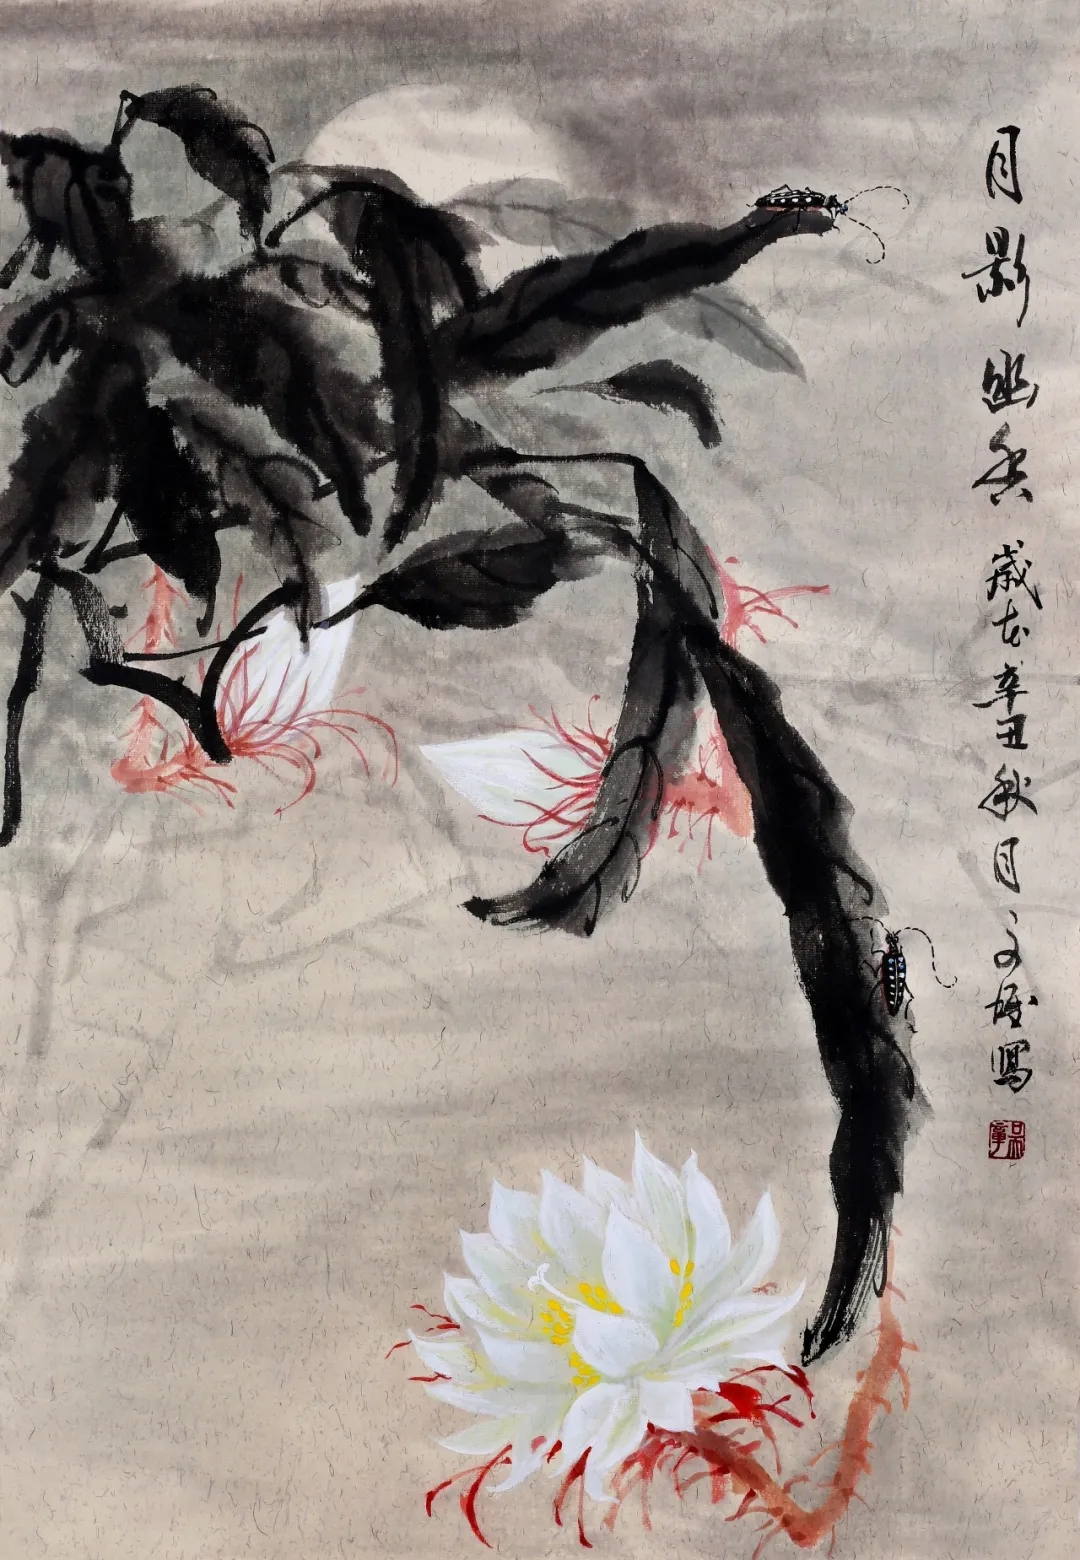 月影幽香 歲在辛丑秋月文寫